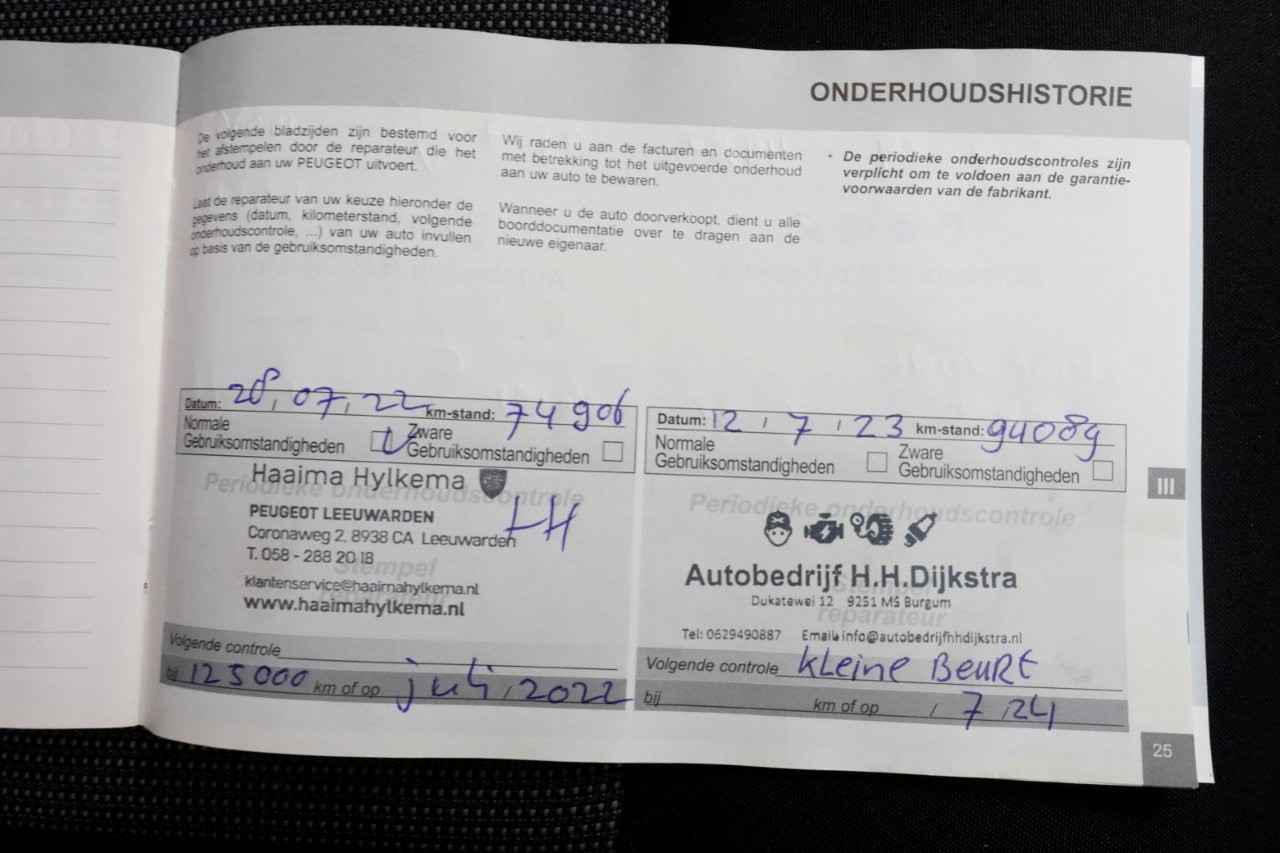 ONDERHOUDSHISTORIE
De volgende bladzijden zijn bestemd voor
het afstempelen door de reparateur die het
onderhoud aan uw PEUGEOT uitvoert.
Laat de reparateur van uw keuze hieronder de
gegevens (datum, kilometerstand, volgende
onderhoudscontrole, ...) van uw auto invullen
op basis van de gebruiksomstandigheden.
Wij raden u aan de facturen en documenten
met betrekking tot het uitgevoerde onderhoud
aan uw auto te bewaren.
Wanneer u de auto doorverkoopt, dient u alle
boorddocumentatie over te dragen aan de
nieuwe eigenaar.
• De periodieke onderhoudscontroles zijn
verplicht om te voldoen aan de garantie-
voorwaarden van de fabrikant.
Datum: 28, 07, 22 km-stand: 74906
Normale
Gebruiksomstandigheden
Zware
Gebruiksomstandigheden
Periodieke onderhoudscontrole
Haaima Hylkema
PEUGEOT LEEUWARDEN
Coronaweg 2, 8938 CA Leeuwarden
T. 058 - 288 20 18
Stempel
reparateur
klantenservice@haaimahylkema.nl
www.haaimahylkema.nl
HH
Volgende controle
bij 125000 km of op juli, 2022
Datum: 12 / 7 / 23 km-stand: 94089
Normale
Gebruiksomstandigheden
Zware
Gebruiksomstandigheden
Periodieke onderhoudscontrole
Autobedrijf H.H.Dijkstra
Stempel
reparateur
Dukatewei 12 9251 MS Burgum
Tel: 0629490887 Email: info@autobedrijfhhdijkstra.nl
Volgende controle kleine Beurt
bij km of op / 7 / 24
III
25